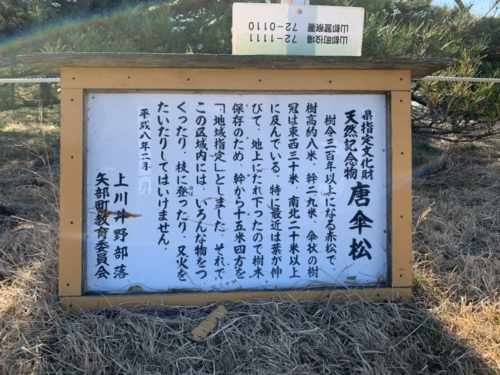 山都町役場
72-1111
山都警察署
72-0110
県指定文化財
天然記念物
唐傘松
樹令三百年以上になる赤松で、
樹高約八米、幹二・九米、傘状の樹
冠は東西三十米、南北二十米以上
に及んでいる。特に最近は葉が伸
びて、地上にたれ下ったので樹木
保存のため、幹から十五米四方を
「地域指定」としました。それで
この区域内には、いろんな物をつ
くったり、枝に登ったり、又火を
たいたりしてはいけません。
平成八年二
上川井野部落
矢部町教育委員会